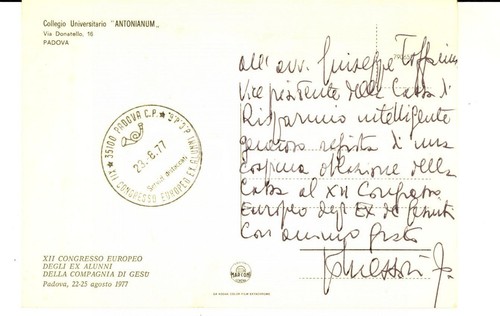 Collegio Universitario "ANTONIANUM"
Via Donatello, 16
PADOVA
35100 PADOVA C.P.
23.8.77
XII CONGRESSO EUROPEO EX ALUNNI
all'avv. Giuseppe Toffanin
Vice presidente della Cassa di
Risparmio intelligente
generoso regista d'una
cospicua oblazione della
Cassa al XII Congresso
Europeo degli Ex dei Gesuiti
Con animo grato
XII CONGRESSO EUROPEO
DEGLI EX ALUNNI
DELLA COMPAGNIA DI GESÙ
Padova, 22-25 agosto 1977